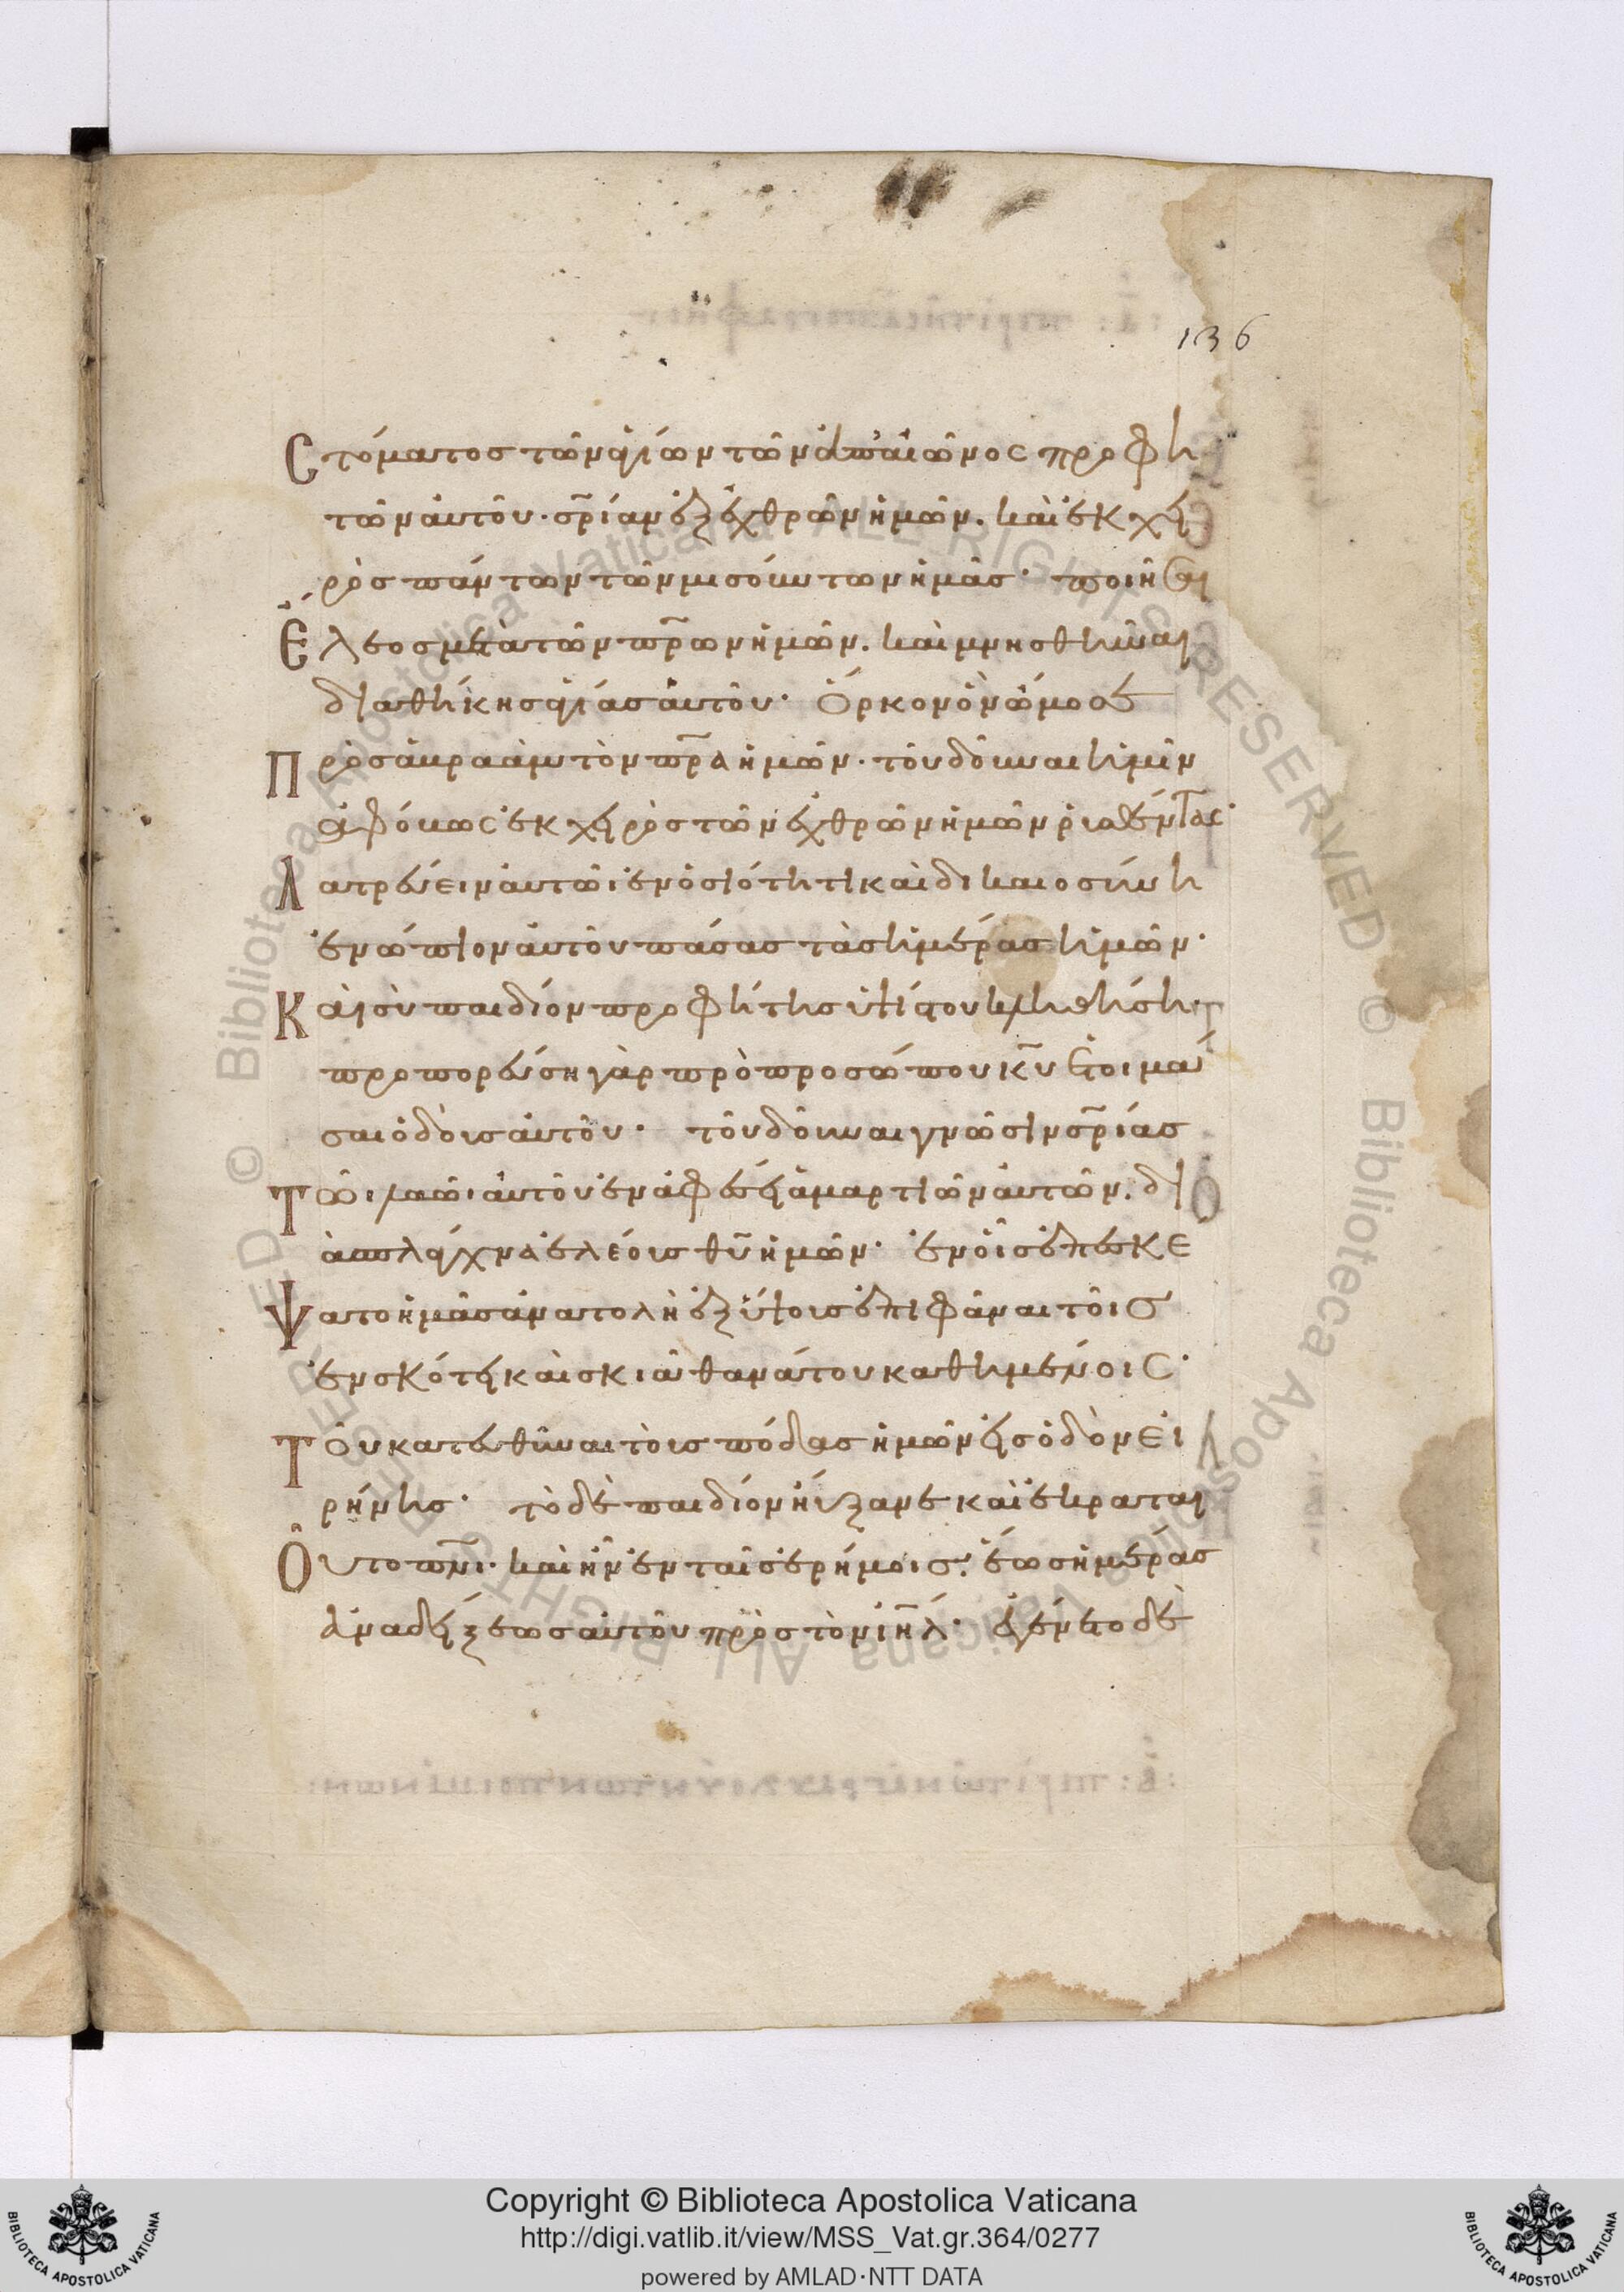 136
Στόματος τῶν ἁγίων τῶν ἀπ' αἰῶνος προφη
τῶν αὐτοῦ· σρίαν ἐξ ἐχθρῶν ἡμῶν. καὶ ἐκ χει
ρὸς πάντων τῶν μισούντων ἡμᾶς· ποιῆσαι
ἔλεος μετὰ τῶν πρων ἡμῶν. καὶ μνησθῆναι
διαθήκης ἁγίας αὐτοῦ· ὅρκον ὃν ὤμοσε
πρὸς ἀβραὰμ τὸν πρα ἡμῶν· τοῦ δοῦναι ἡμῖν
ἀφόβως ἐκ χειρὸς τῶν ἐχθρῶν ἡμῶν ῥυσθέντας·
λατρεύειν αὐτῶι ἐν ὁσιότητι καὶ δικαιοσύνη
ἐνώπιον αὐτοῦ πάσας τὰς ἡμέρας ἡμῶν·
καὶ σὺ παιδίον προφήτης ὑψίστου κληθήση·
προπορεύση γὰρ πρὸ προσώπου κυ ἑτοιμά
σαι ὁδοὺς αὐτοῦ· τοῦ δοῦναι γνῶσιν σρίας
τῶι λαῶι αὐτοῦ ἐν ἀφέσει ἁμαρτιῶν αὐτῶν. δι
ὰ σπλάγχνα ἐλέους θυ ἡμῶν· ἐν οἷς ἐπεσκέ
ψατο ἡμᾶς ἀνατολὴ ἐξ ὕψους ἐπιφάναι τοῖς
ἐν σκότει καὶ σκιᾶ θανάτου καθημένοις·
τοῦ κατευθῦναι τοὺς πόδας ἡμῶν εἰς ὁδὸν εἰ
ρήνης· τὸ δὲ παιδίον ηὔξανε καὶ ἐκραται
οῦτο πνι· καὶ ἦν ἐν ταῖς ἐρήμοις· ἕως ἡμέρας
ἀναδείξεως αὐτοῦ πρὸς τὸν ιηλ· ἐγένετο δὲ
Copyright © Biblioteca Apostolica Vaticana
http://digi.vatlib.it/view/MSS_Vat.gr.364/0277
powered by AMLAD·NTT DATA
BIBLIOTECA APOSTOLICA VATICANA
BIBLIOTECA APOSTOLICA VATICANA